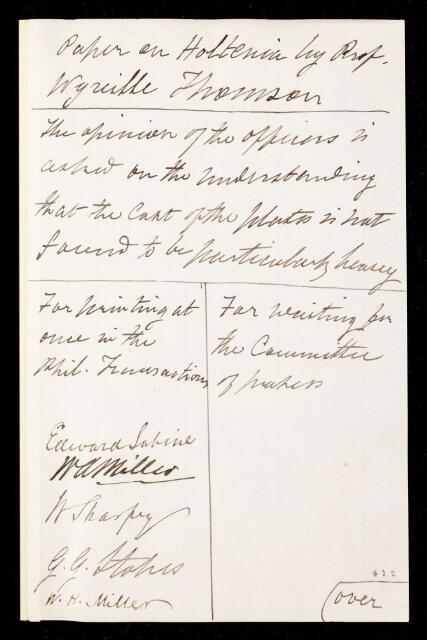 Paper on Holtenia by Prof.
Wyville Thomson
The opinion of the officers is
asked on the understanding
that the cost of the plates is not
found to be particularly heavy
For printing at
once in the
Phil. Transactions
Edward Sabine
W A Miller
W Sharpey
G. G. Stokes
W. H. Miller
For waiting for
the Committee
of papers
622
(over